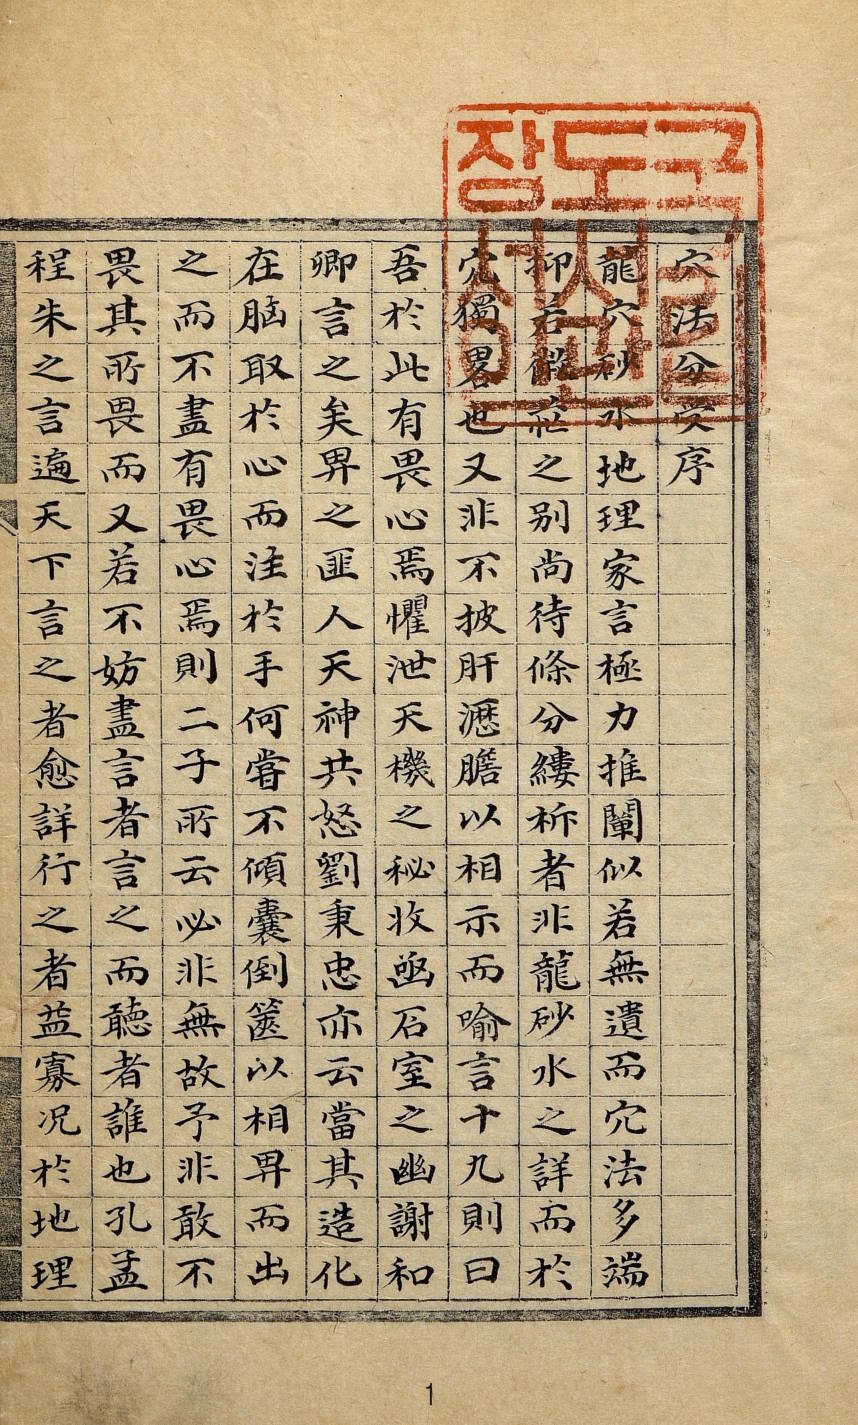 穴法分受序
龍穴砂水地理家言極力推闡似若無遺而穴法多端
抑若微茫之別尚待條分縷柝者非龍砂水之詳而於
穴獨畧也又非不披肝瀝膽以相示而喻言十九則曰
吾於此有畏心焉懼泄天機之秘收亟石室之幽謝和
卿言之矣畀之匪人天神共怒劉秉忠亦云當其造化
在脑取於心而注於手何甞不傾囊倒篋以相畀而出
之而不盡有畏心焉則二子所云必非無故予非敢不
畏其所畏而又若不妨盡言者言之而聽者誰也孔孟
程朱之言遍天下言之者愈詳行之者益寡况於地理
국도장
립서
1